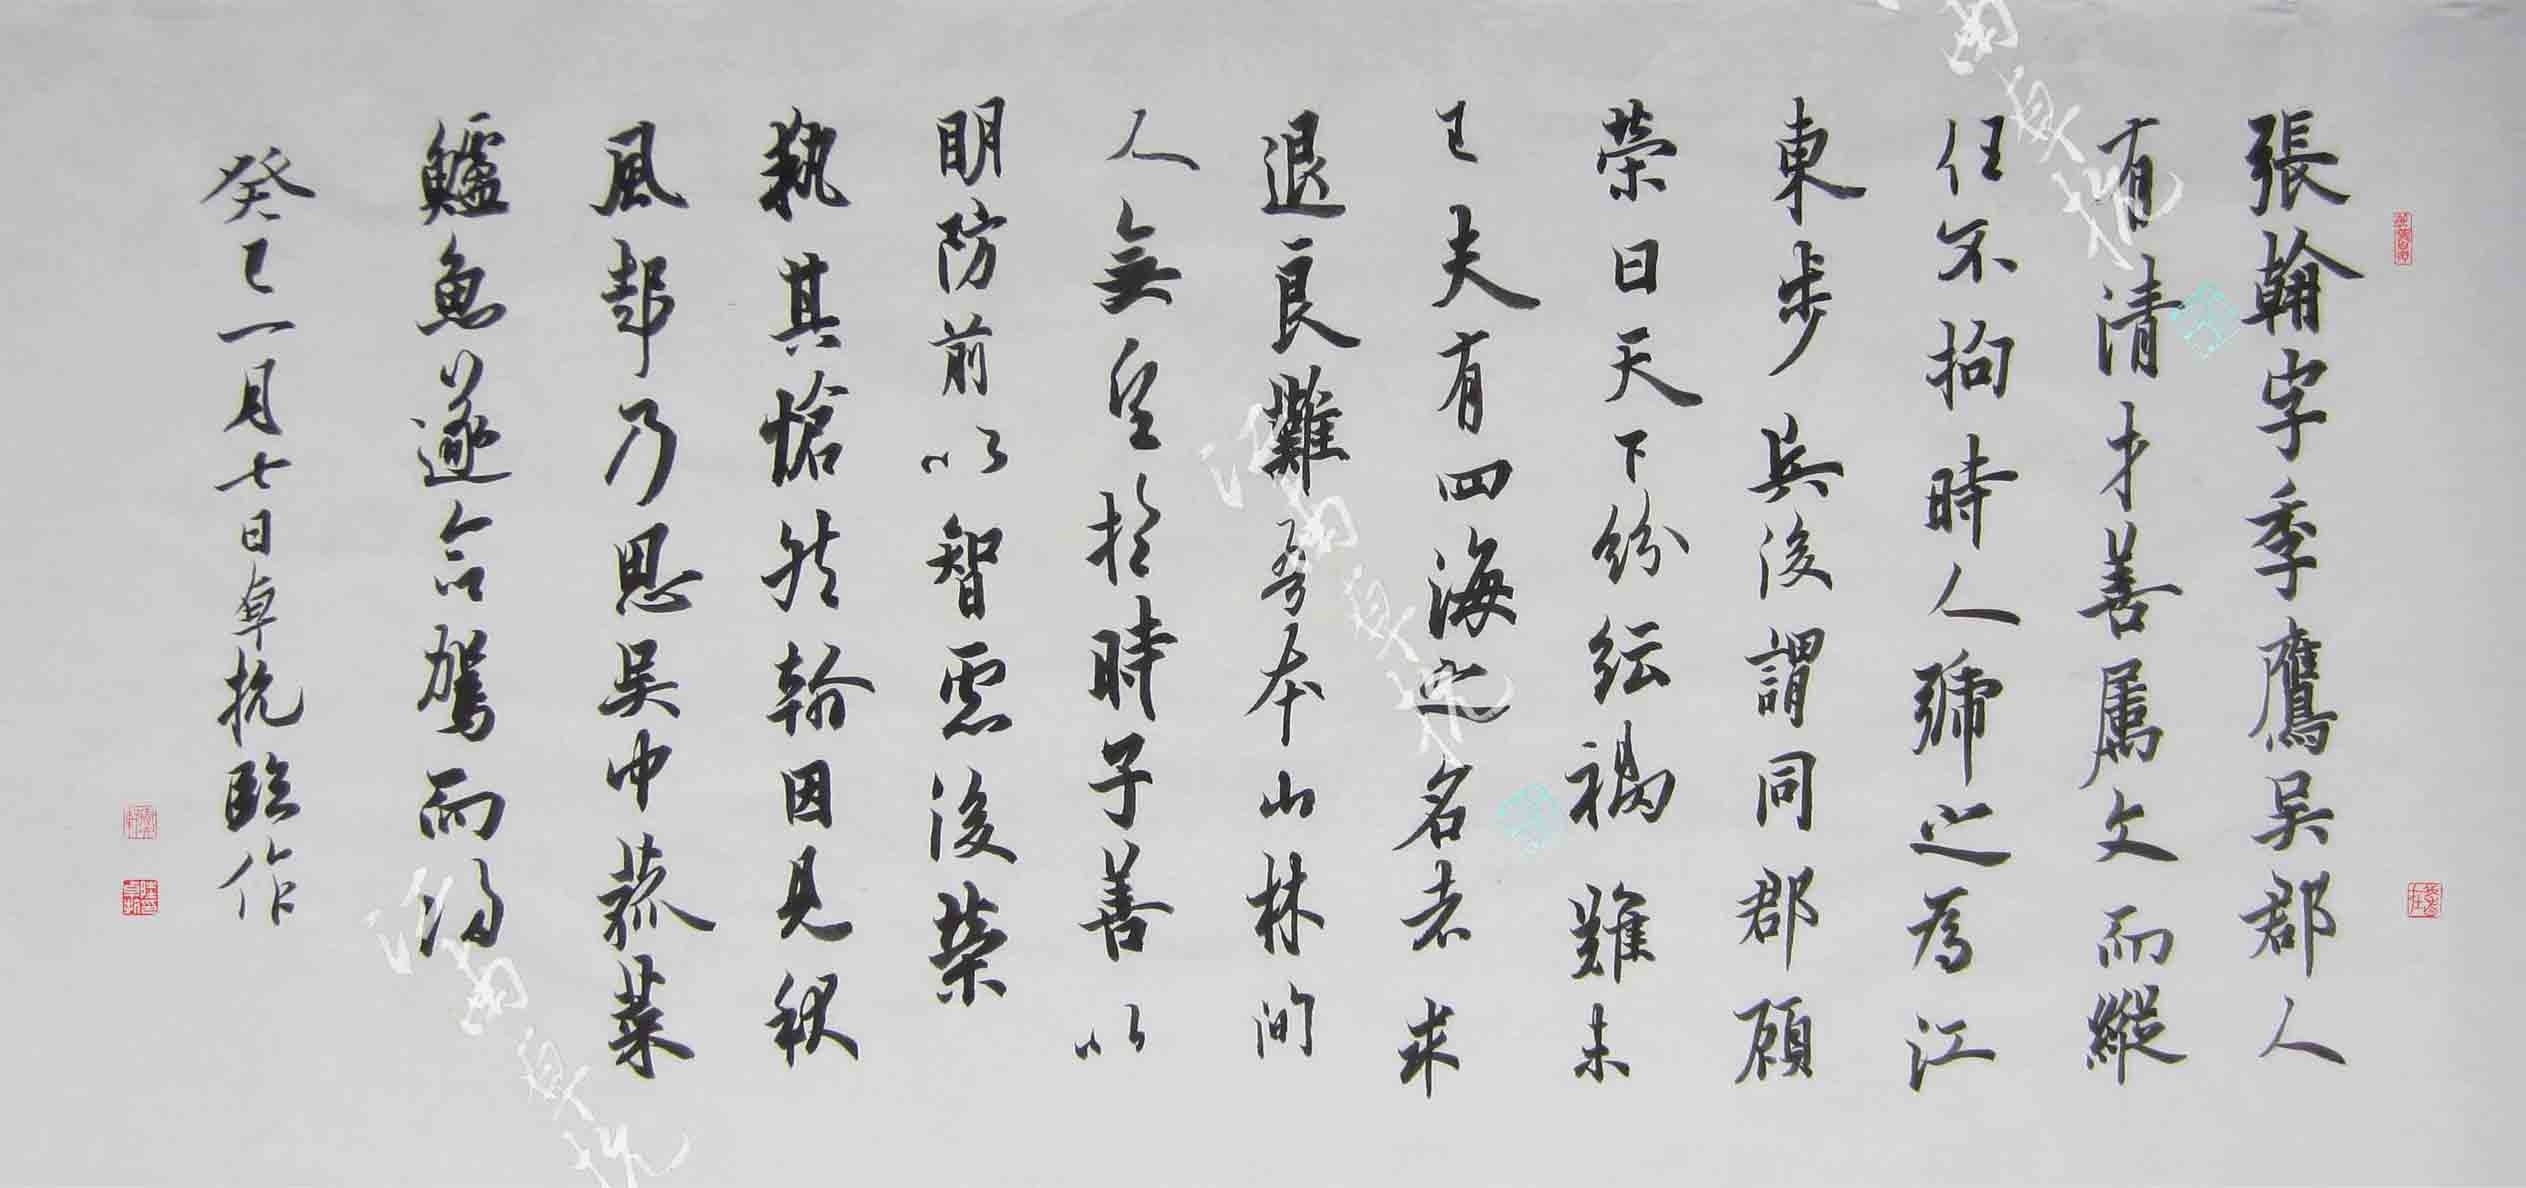 張翰字季鷹吳郡人
有清才善属文而縱
任不拘時人號之為江
東步兵後謂同郡顧
榮曰天下紛紜禍難未
已夫有四海之名者求
退良難吾本山林間
人無望於時子善以
明防前以智慮後榮
執其愴然翰因見秋
風起乃思吳中菰菜
鱸魚遂命駕而歸
癸巳一月七日卓抗臨作